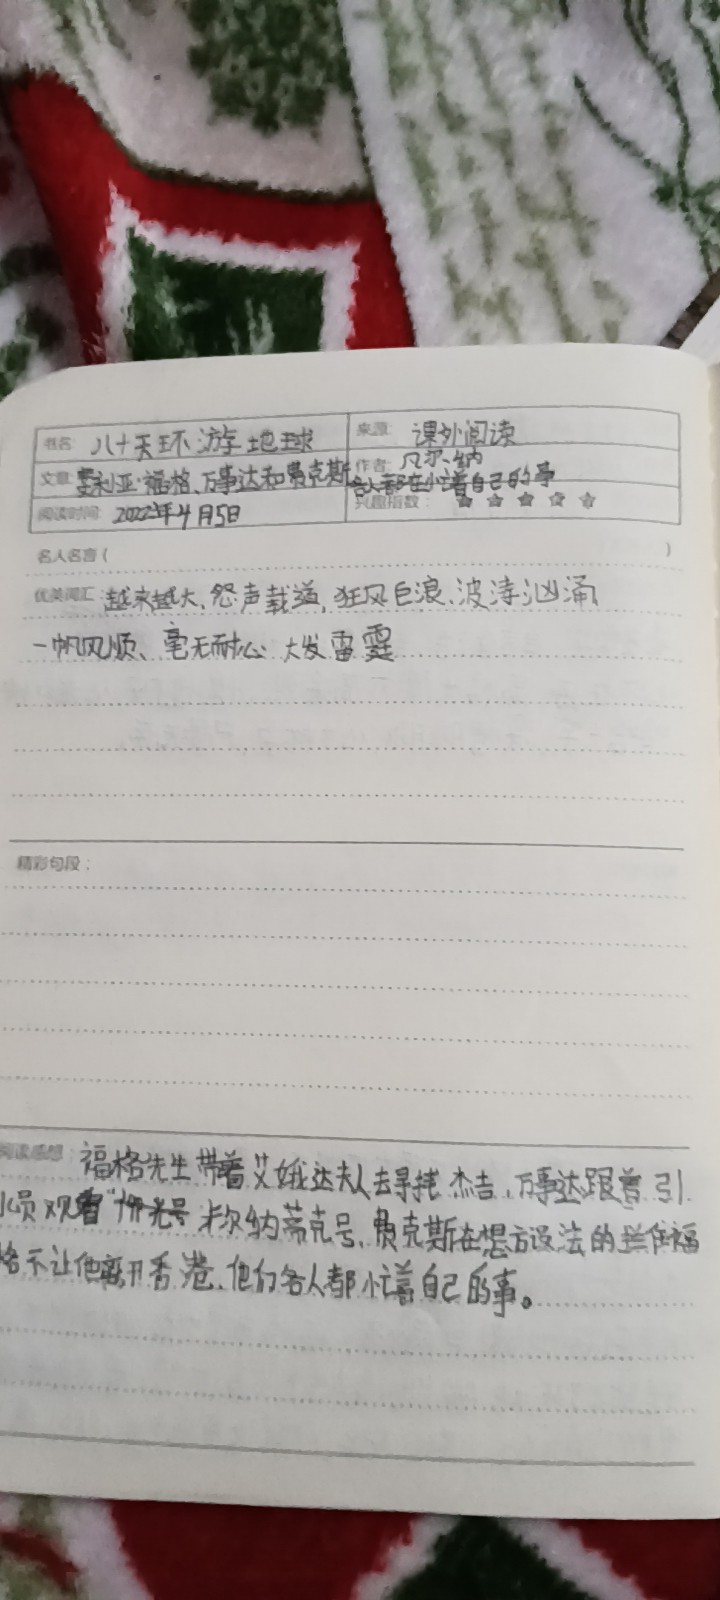 书名: 八十天环游地球 来源: 课外阅读
文章: 费利亚·福格、万事达和费克斯 作者: 凡尔·纳
各人都在忙着自己的事
阅读时间: 2022年4月5日 兴趣指数: ★ ★ ★ ★ ★
名人名言 ( )
优美词汇: 越来越大、怨声载道、狂风巨浪、波涛汹涌
一帆风顺、毫无耐心 大发雷霆
精彩句段:
阅读感想: 福格先生带着艾娥达夫人去寻找 杰吉、万事达跟着 引
观看 卡尔纳蒂克号、费克斯在想方设法的拦住福
格不让他离开香港、他们各人都忙着自己的事。